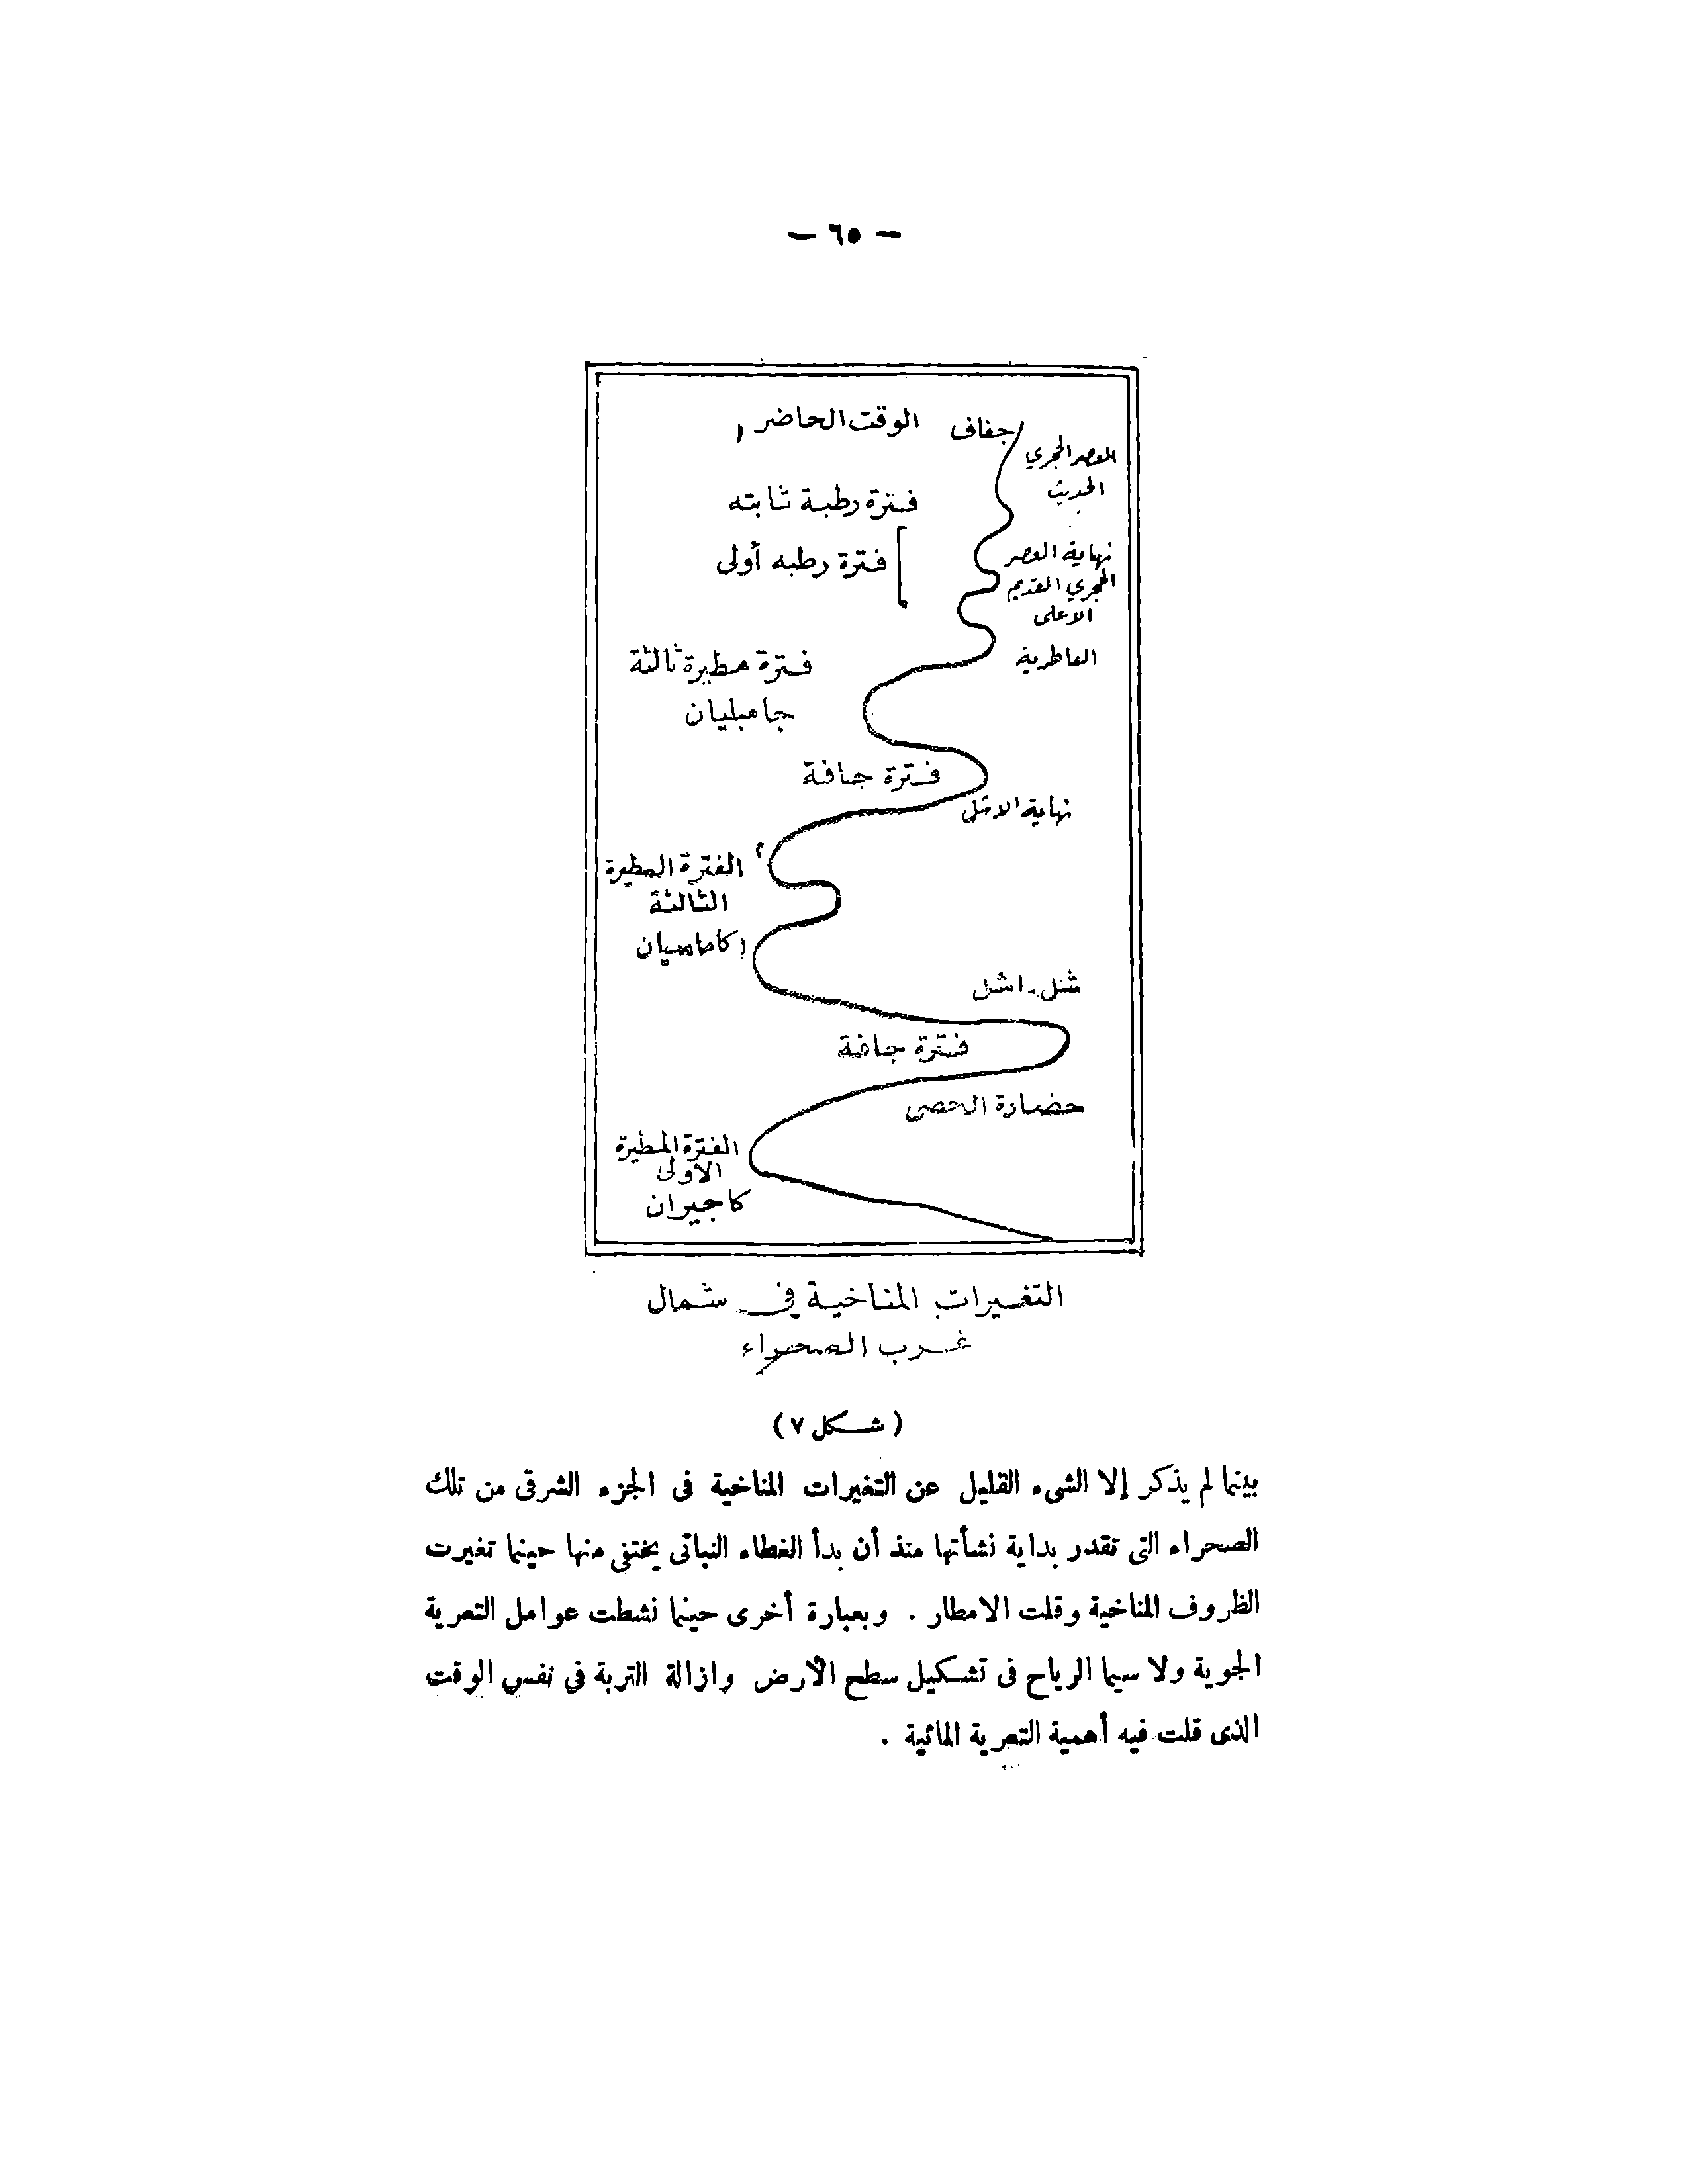 — ٦٥ —
جفاف الوقت الحاضر
العصر الحجري
الحديث
فترة رطبة ثابته
نهاية العصر
الحجري القديم
الاعلى
فترة رطبه أولى
العاطرية
فترة مطيرة ثالثة
جامبليان
فترة جافة
نهاية الاشل
الفترة المطيرة
الثالثة
شل - اشل
فترة جافة
حضارة الحصى
الفترة المطيرة
الاولى
كاجيران
التغيرات المناخية في شمال
غرب الصحراء
( شكل ٧ )
بينما لم يذكر إلا الشىء القليل عن التغيرات المناخية فى الجزء الشرقى من تلك
الصحراء التى تقدر بداية نشأتها منذ أن بدأ الغطاء النباتى يختفى منها حينما تغيرت
الظروف المناخية وقلت الامطار . وبعبارة أخرى حينما نشطت عوامل التعرية
الجوية ولا سيما الرياح فى تشكيل سطح الأرض وازالة التربة فى نفس الوقت
الذى قلت فيه أهمية التعرية المائية .